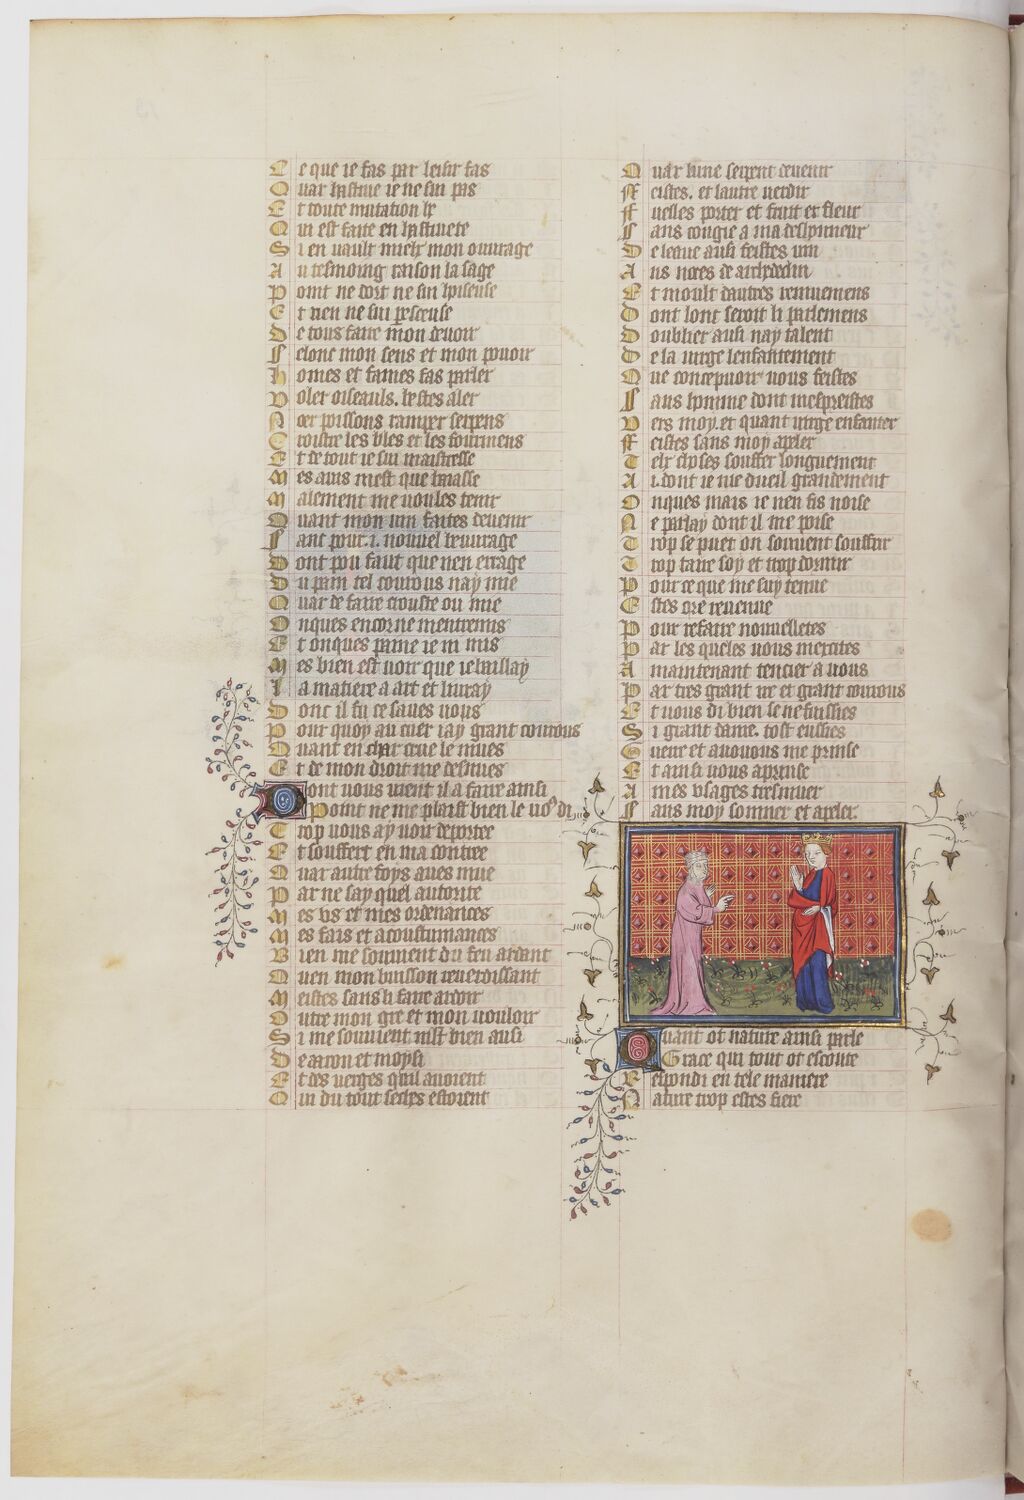 Ce que ie fas par leisir fas
Quar hastiue ie ne sui pas
Et toute mutation he
Qui est faite en hastiuete
Si en vault miex mon ouurage
Autesmoing raison la sage
Point ne dort ne sui huiseuse
Et rien ne sui perceuse
De tous faire mon deuoir
Selonc mon sens et mon pouoir
Homes et fames fas parler
Voler oiseauls. bestes aler
Noer poissons ramper serpens
Croistre les bles et les fourmens
Et de tout ie sui maistresse
Mes auis mest que baiasse
Malement me voules tenir
Quant mon vin faites deuenir
Sanc pour .i. nouuel beuurage
Dont pou faut que nen errage
Du pain tel courous nay mie
Quar de faire crouste ou mie
Onques encor ne mentremis
Et onques paine ie ni mis
Mes bien est voir que ie baillay
La matiere a art et liuray
Dont il fu ce saues vous
Pour quoy au cuer iay grant courous
Quant en char crue le mues
Et de mon droit me desnues
Dont vous vient il a faire ainsi
Point ne me plaist bien le vous di
Trop vous ay voir deportee
Et souffert en ma contree
Quar autre foys aues mue
Par ne say quel autorite
Mes vs et mes ordenances
Mes fais et acoustumances
Bien me souuient du feu ardant
Quen mon buisson reuerdissant
Meistes sans li faire ardoir
Outre mon gre et mon vouloir
Si me souuient mlt bien ausi
De aaron et moysi
Et des verges quil auoient
Qui du tout seches estoient
Quar lune serpent deuenir
Feistes. et lautre verdir
Fuelles porter et fruit et fleur
Sans congie a ma deshonneur
De leaue ausi feistes vin
Aus noces de archedeclin
Et moult dautres remuemens
Dont lons seroit li parlemens
Doublier ausi nay talent
De la virge lenfantement
Que conceuoir vous feistes
Sans homme dont mespreistes
Vers moy. et quant virge enfanter
Feistes sans moy apeler
Telx choses souffer longuement
Ai. dont ie me dueil grandement
Onques mais ie nen fis noise
Ne parlay dont il me poise
Trop se puet on souuent souffrir
Trop taire soy et trop dormir
Pour ce que me suy tenue
Estes ore reuenue
Pour refaire nouuelletes
Par les queles vous meterites
A maintenant tencier a vous
Par tres grant ire et grant courous
Et vous di bien se ne fussies
Si grant dame. tost eussies
Guerre et auouous me prinse
Et ainsi vous aprensse
A mes vsages tresmuer
Sans moy sommer et apeler.
Quant ot nature ainsi parle
Grace qui tout ot escoute
Respondi en tele maniere
Nature trop estes fiere